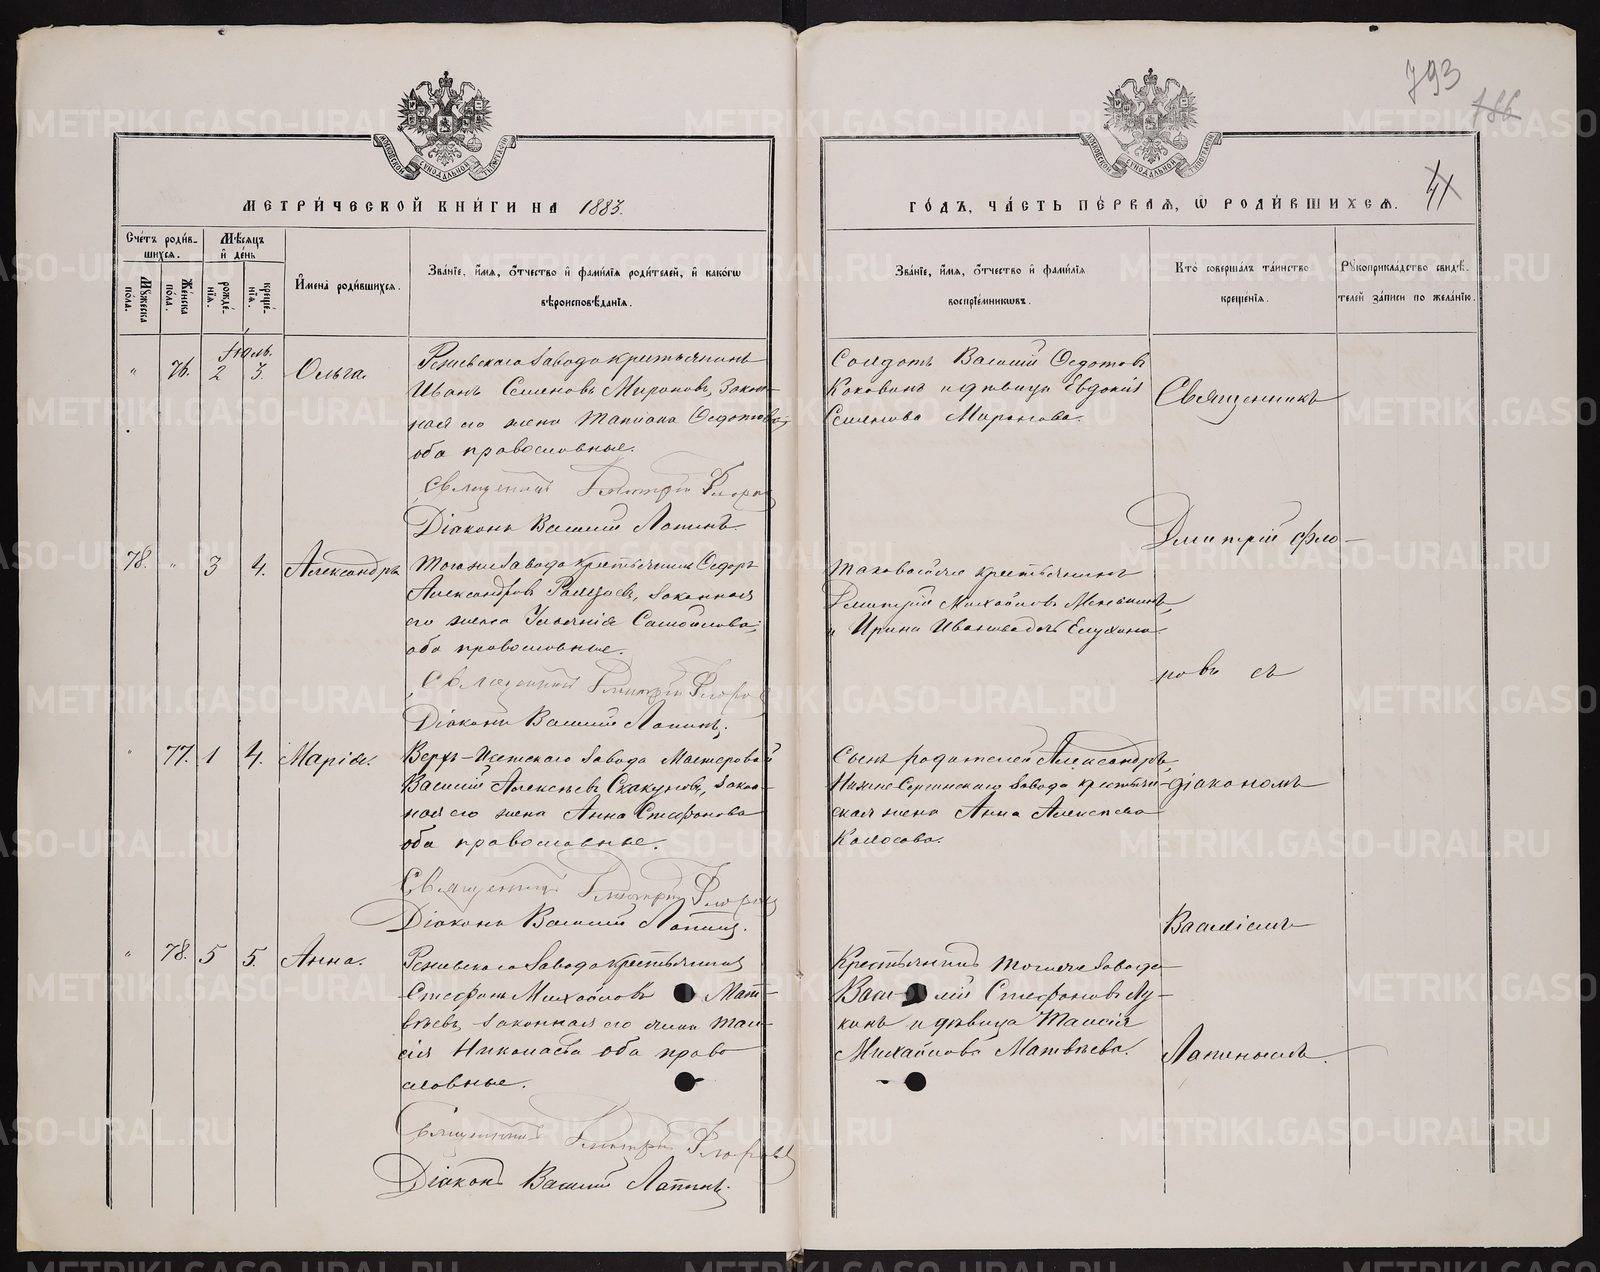 793
186
МОСКОВСКОЙ СѴНОДАЛЬНОЙ ТИПОГРАФІИ
МОСКОВСКОЙ СѴНОДАЛЬНОЙ ТИПОГРАФІИ
МЕТРИ́ЧЕСКОЙ КНИ́ГИ НА 1883.
ГО́ДЪ, ЧА́СТЬ ПЕ́РВАЯ, Ѡ РОДИ́ВШИХСЯ.
Сче́тъ роди́в-
шихся.
Мꙋ́жеска по́ла.
Же́нска по́ла.
Мѣ́сяцъ и҆ де́нь
рожде́нїѧ.
креще́нїѧ.
И҆мена̀ роди́вшихся.
Зва́нїе, и҆́мѧ, ѻ҆́тчество и҆ фами́лїѧ роди́телей, и҆ како́гѡ
вѣроисповѣ́данїѧ.
Зва́нїе, и҆́мѧ, ѻ҆́тчество и҆ фами́лїѧ
воспрїе́мникѡвъ.
Кто̀ соверша́лъ та́инство
креще́нїѧ.
Рꙋкоприкла́дство свидѣ́-
телей за́писи по жела́нїю.
Іюль.
" 76. 2 3. Ольга.
Режевскаго Завода крестьянинъ
Иванъ Семеновъ Мироновъ, закон-
ная его жена Татiана Ѳедотова,
оба православные.
Священникъ Дмитрій Флоров
Діаконъ Василій Лапинъ.
Солдатъ Василій Ѳедотов
Коковинъ и девица Евдокія
Семенова Миронова.
Священникъ
Дмитрій Фло-
78. " 3 4. Александръ
Тогоже Завода крестьянинъ Ѳедоръ
Александров, законная
его жена Самойлова,
оба православные.
Священникъ Дмитрій Флоров
Діаконъ Василій Лапинъ.
крестьянинъ
Дмитрій Михайловъ
и Ирина Иванова дочь
ровъ съ
" 77. 1 4. Марія.
Верхъ-Исетскаго Завода Мастеровой
Василій Алексѣевъ Скакуновъ, закон-
ная его жена Анна Стефанова
оба православные.
Священникъ Дмитрій Флоров
Діаконъ Василій Лапинъ.
Сынъ родителей Александръ,
Нижне-Сергинскаго Завода крестьян-
ская жена Анна Алексѣева
Колосова.
діакономъ
Василіемъ
" 78. 5 5. Анна.
Режевскаго Завода крестьянинъ
Стефанъ Михайловъ Мат-
вѣевъ, законная его жена Таи-
сія Николаева оба право-
славные.
Священникъ Дмитрій Флоров
Діаконъ Василій Лапинъ.
Крестьянинъ тогоже Завода
Василій Стефановъ Лу-
кинъ и девица Таисія
Михайлова Матвѣева.
Лапинымъ.